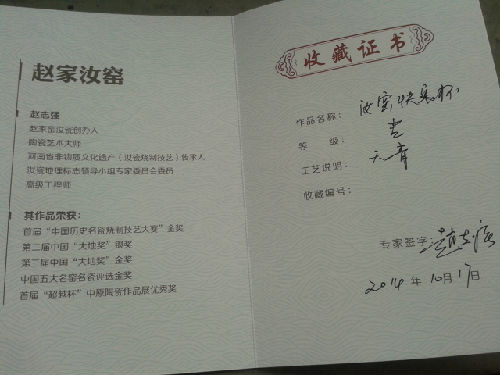 赵家汝窑
赵志强
赵家窑汝瓷创办人
陶瓷艺术大师
河南省非物质文化遗产（汝瓷烧制技艺）传承人
汝瓷地理标志领导小组专家委员会委员
高级工程师
其作品荣获：
首届“中国历史名瓷烧制技艺大赛”金奖
第二届中国“大地奖”银奖
第三届中国“大地奖”金奖
中国五大名窑名瓷评选金奖
首届“超越杯”中原陶瓷作品展优秀奖
收藏证书
作品名称：汝窑快客杯
等 级：壹
工艺说明：天青
收藏编号：
专家签字：赵志强
2014年10月17日